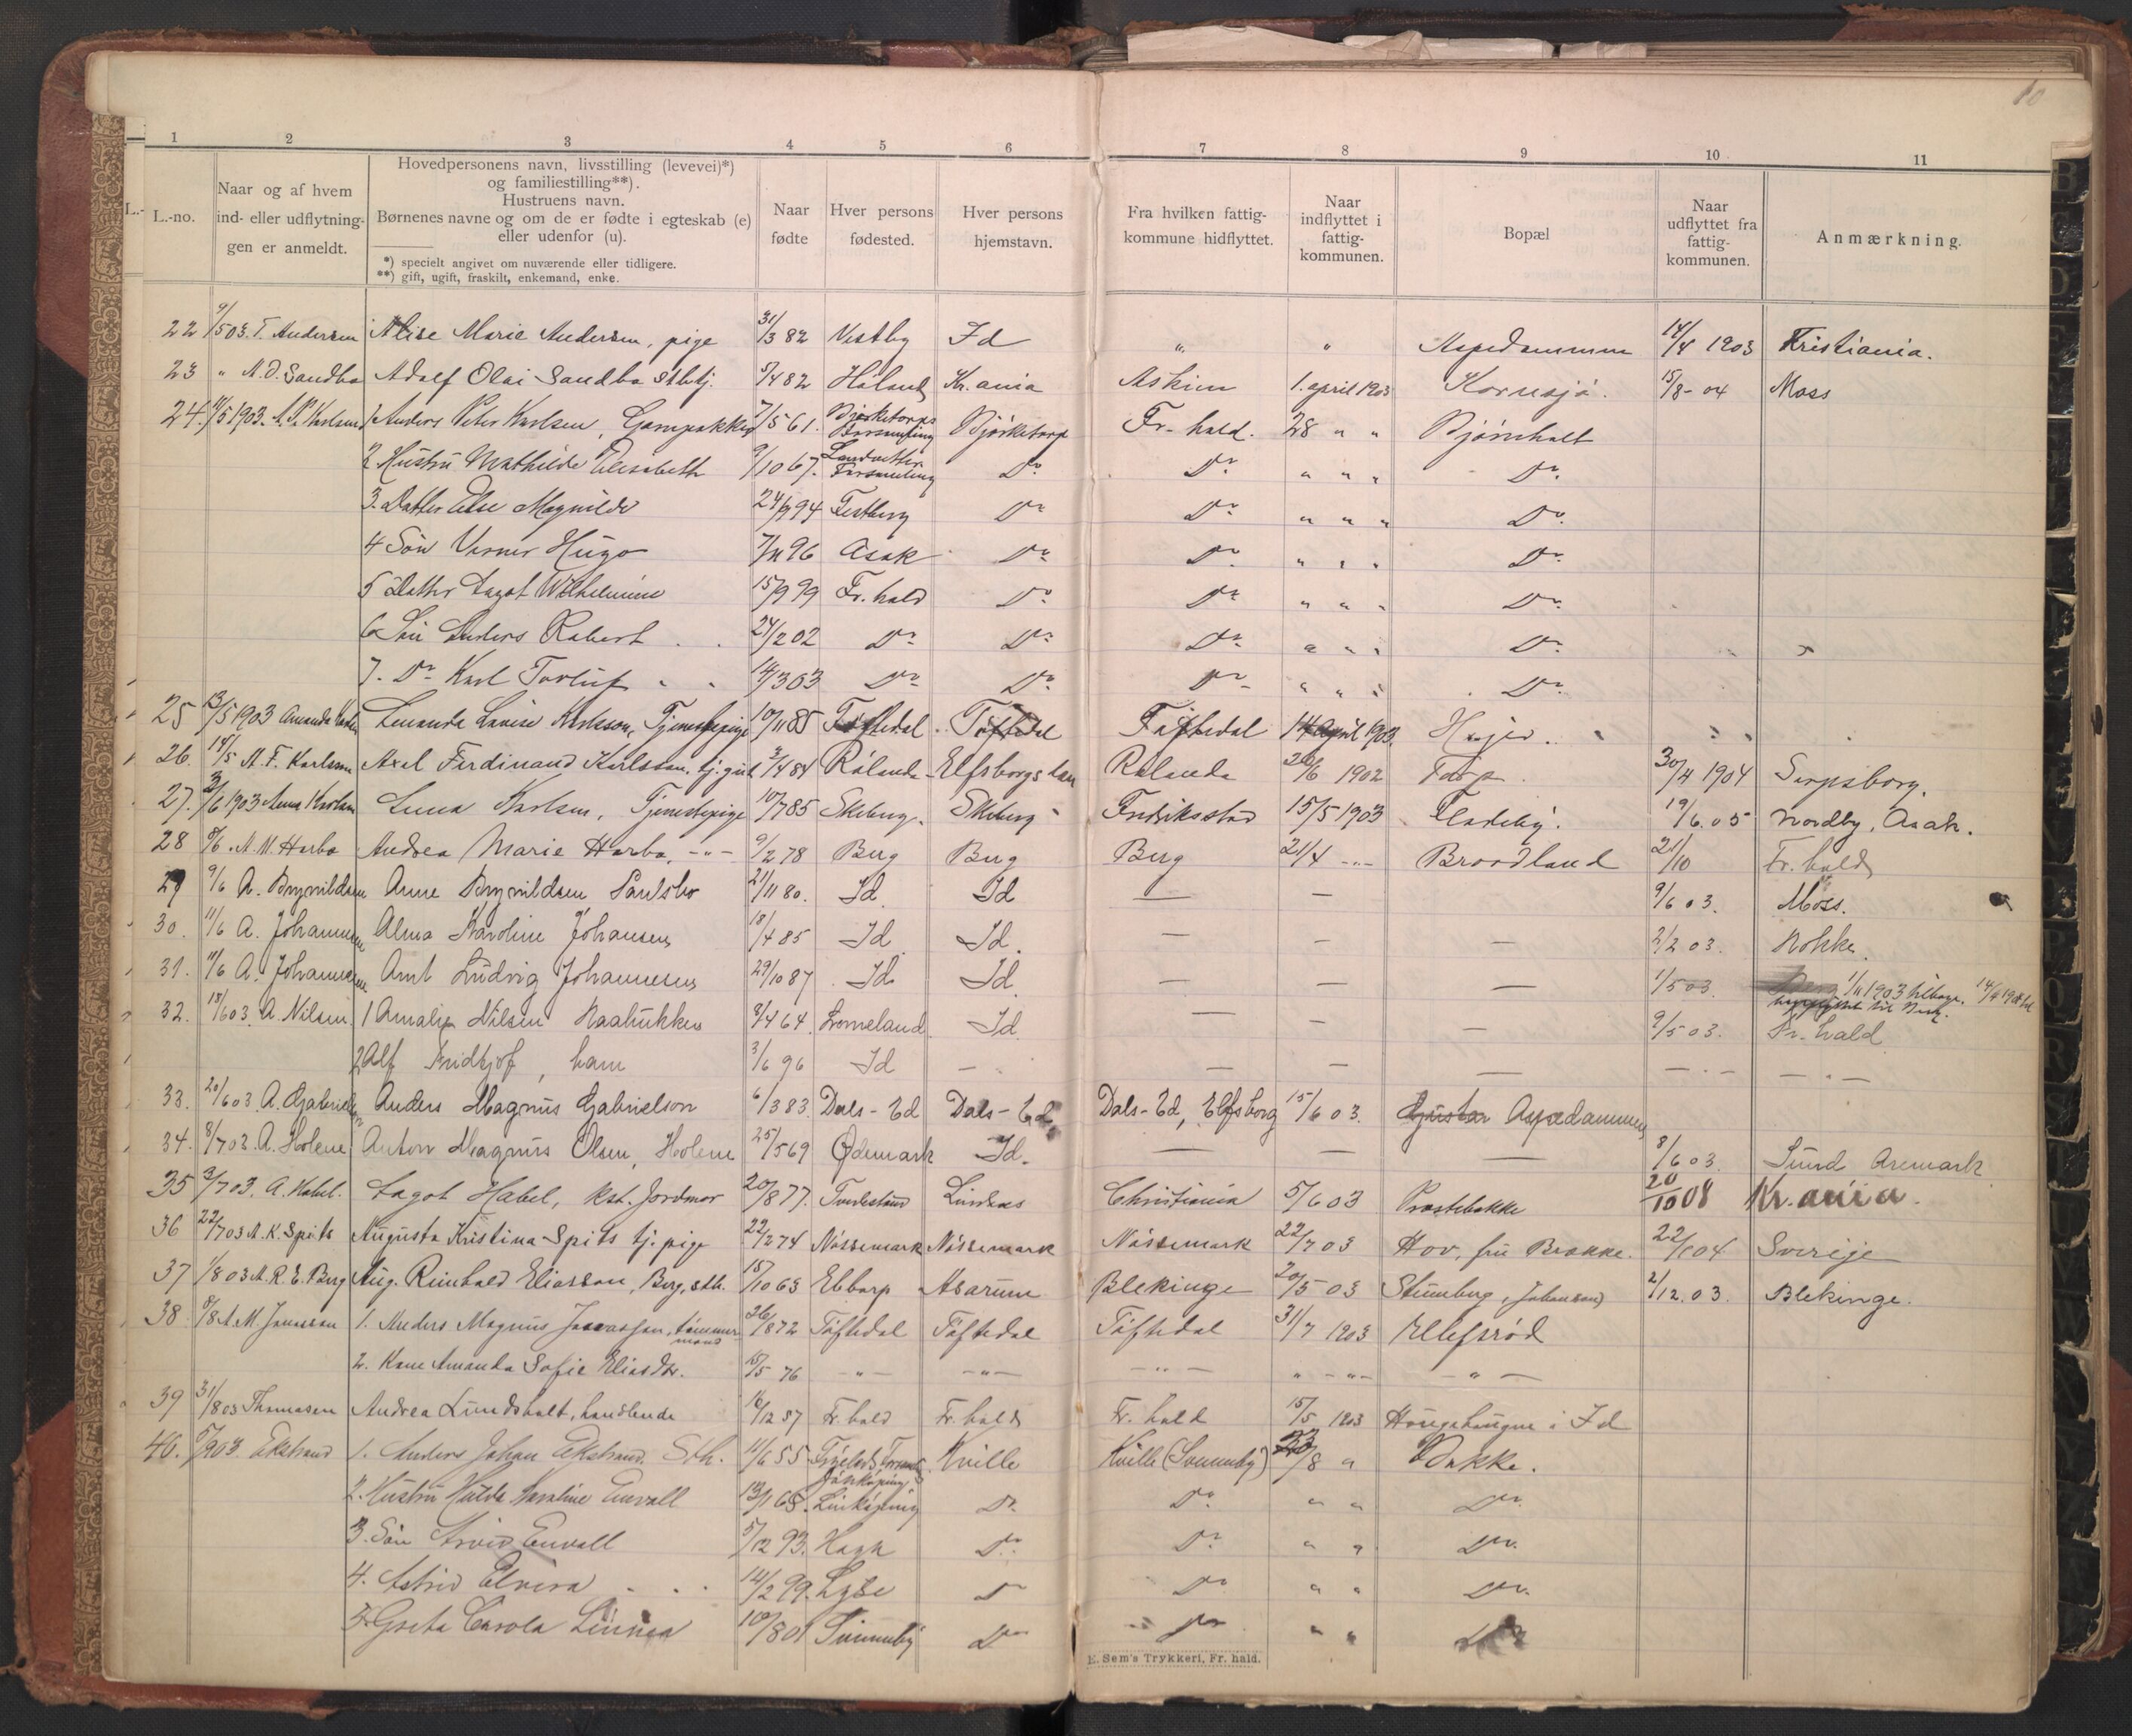 10
1 2 3 4 5 6 7 8 9 10 11
L.-
L.-no.
Naar og af hvem
ind- eller udflytnin-
gen er anmeldt.
Hovedpersonens navn, livsstilling (levevei)*)
og familiestilling**).
Hustruens navn.
Børnenes navne og om de er fødte i egteskab (e)
eller udenfor (u).
*) specielt angivet om nuværende eller tidligere.
**) gift, ugift, fraskilt, enkemand, enke.
Naar
fødte
Hver persons
fødested.
Hver persons
hjemstavn.
Fra hvilken fattig-
kommune hidflyttet.
Naar
indflyttet i
fattig-
kommunen.
Bopæl
Naar
udflyttet fra
fattig-
kommunen.
Anmærkning.
22 9/5 03. T. Andersen Alise Marie Andersen, pige 31/3 82 Vestby Id " " Aspedammen 14/4 1903 Kristiania.
23 " A.O. Sandbo Adolf Olai Sandbo stbtj. 5/4 82 Høland Kr.ania Askim 1. april 1903 Kornsjø. 15/8 - 04 Moss
24. 11/5 1903. A.P. Karlsen 1 Anders Peter Karlsen, 7/5 61. Bjørketorps Forsamling Bjørketorp Fr-hald. 28 " " Bjørnholt
2 Hustru Mathilde Elisabeth 9/10 67. Landvetter Forsamling Do Do " " " Do.
3. Datter Else Magnilde 24/9 94 Do Do " " " Do.
4 Søn Verner Hugo 7/11 96 Asak Do Do. " " " Do.
5 Datter Dagot Wilhelmine 15/9 99 Fr. hald Do Do " " " Do.
6 Søn Anders Robert 24/2 02 Do Do Do " " " Do.
7. Do Karl Torleif " " 14/3 03 Do Do. Do " " " Do.
25 13/5 1903 Amanda Louise Karlsson, Tjenestepige 10/11 85 Töftedal. Töftedal Töftedal 14 April 1903.
26. 14/5 A. F. Karlsson Axel Ferdinand Karlsson, tj.gut 3/4 84 Rölanda Elfsborgs län Rölanda 26/6 1902 Torp. 30/4 1904 Sarpsborg.
27. 3/6 1903 Anna Karlsen Anna Karlsen, Tjenestepige 10/7 85 Skeberg. Skeberg Fredriksstad 15/5 1903 Fladeby. 19/6. 05 Nordby, Asak.
28 8/6. A. M. Harbo Andrea Marie Harbo, -"- 9/2 78 Berg Berg Berg 21/4 -"- Brordland 21/10 Fr. hald
29 9/6 A. Brynildsen Anne Brynildsen Paulsbo 21/11 80. Id. Id — — 9/6 03. Moss.
30. 11/6 A. Johannesen Alma Karoline Johansen 18/4 85 Id Id. — — — 2/2 03. Rokke.
31. 11/6 A. Johannesen Arnt Ludvig Johannesen 29/10 87 Id Id. — — — 1/5 03. 1/11 1903 tilbage.
32. 18/6 03. A. Nilsen 1 Amalie Nilsen 8/4 64. Id. — — — 9/5 03. Fr. hald
2 Alf Fridtjof, 3/6 96 Id — — — — — " — — " —
33. 20/6 03 A. Gabriels Anders Magnus Gabrielson 6/3 83. Dals-Ed Dals-Ed Dals-Ed, Elfsborg 15/6 03. Aspedammen
34. 8/7 03. A. Holene Anton Magnus Olsen, Holene 25/5 69 Ødemark Id. — — — 8/6 03. Sund Aremark
35 3/7 03. A. Habel. Dagot Habel, kst. Jordmor 20/8 77. Tvedestrand Lindaas Christiania 5/6 03 Prestebakke 20/10 08 Kr.ania.
36 22/7 03 A. K. Spits Augusta Kristina Spits tj.pige 22/2 74 Nössemark Nössemark Nössemark 22/7 03 Hov, fru Brække. 22/1 04 Sverige
37 1/8 03 A. R. E. Berg Aug. Reinhold Eliasson, Berg, stb. 15/10 63 Ebbarp Asarum Blekinge 20/5 03 Stumberg, Johansen 2/12. 03. Blekinge.
38 8/8 A. M. Jonasson 1. Anders Magnus Jonasson, tømmermand 26/8 72 Töftedal Töftedal Töftedal 31/7 1903 Ellefsrød
2. Kone Amanda Sofie Eliasdtr. 15/5 76 - " - - " - - " - " - " - - " -
39 31/8 03 Thomasen Andrea Lundsholt, handlende 16/12 57 Fr. hald Fr. hald Fr. hald 15/5 1903 Hougehaugne i Id
40. 5/9 03 Ekstrand 1. Anders Johan Ekstrand. Stb. 11/6 55 Jönköping Kville Kville (Svenneby) 23/8 " Bakke.
2. Hustru Hulda Karoline Envall 13/1 65. Linköping Do. Do " " Do
3. Søn Arvid Envall 5/12 93. Do. Do " " Do.
4. Astrid Elvira " " 14/2 99. Lyse Do Do " " Do.
5. Greta Carola Linnea 10/8 01 Svenneby Do Do " "
E. Sem's Trykkeri, Fr. hald.